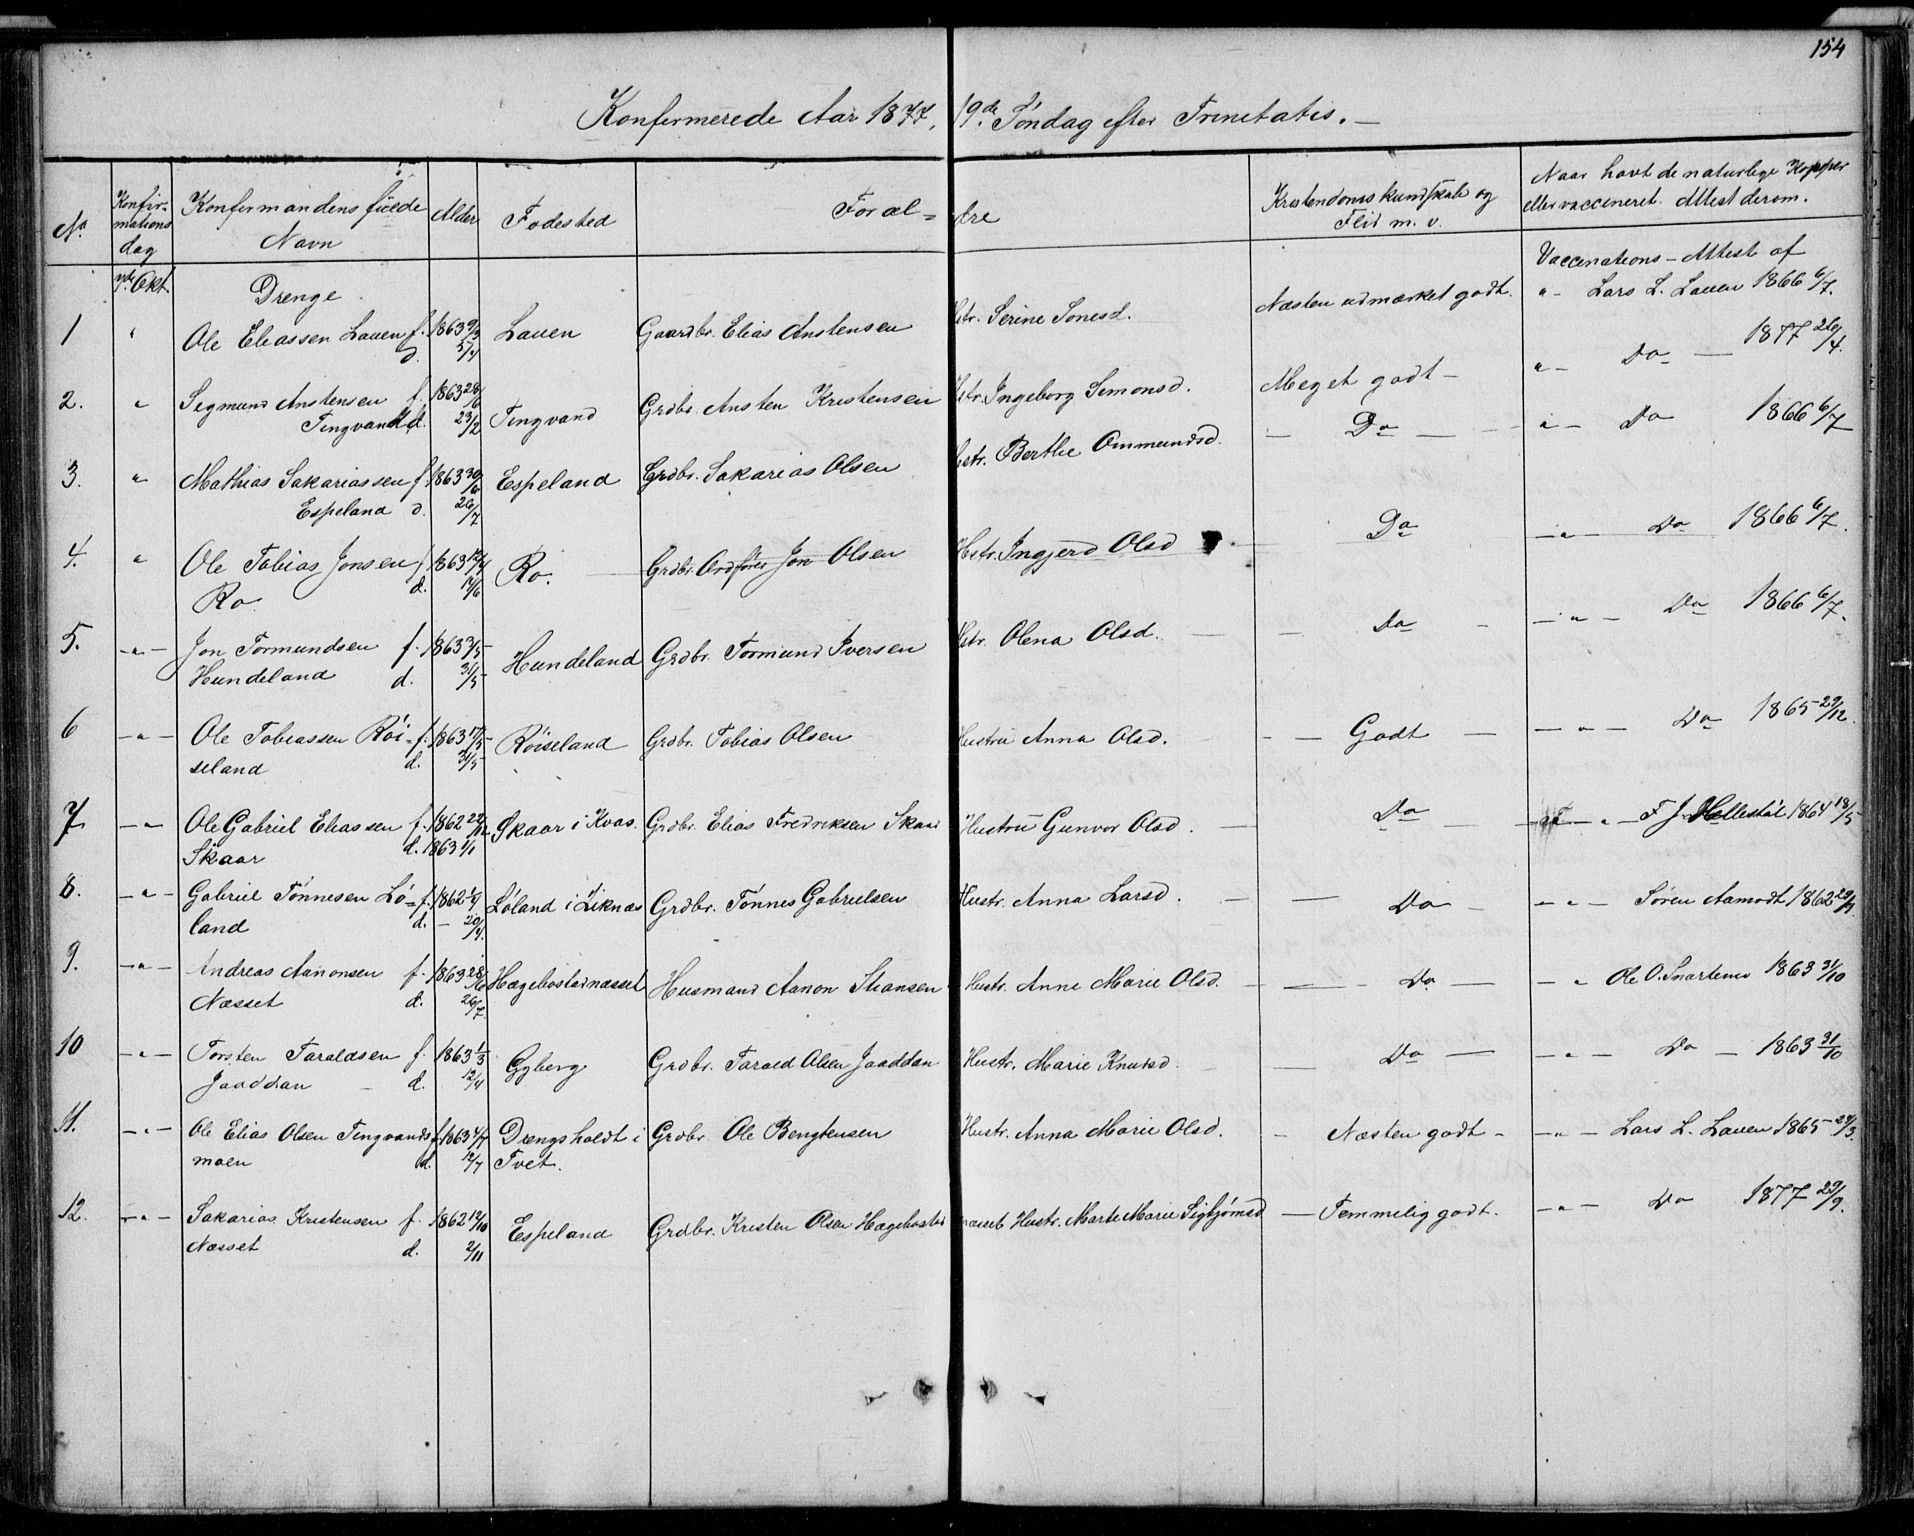 154
Konfirmerede Aar 1877, 19de Søndag efter Trinitatis. —
No
Konfir-
mations
dag
Konfirmandens fulde
Navn
Alder
Fødested
Foræl = dre
Kristendomskundskab og
Flid m. v.
Naar havt de naturlige Kopper
eller vaccineret. Attest derom.
7de Okt.
Drenge
Vaccinations-Attest af
1 " Ole Eliassen Lauen f. 1863 Lauen Gaardbr. Elias Anstensen Hstr. Serine Tonesd. Næsten udmærket godt. " - Lars L. Lauen 1866 6/7.
d. 5/4
2. " Sigmund Anstensen f. 1863 Tingvand Grdbr. Ansten Kristensen Hstr. Ingeborg Simonsd. Meget godt - " - Do - 1877 26/4.
Tingvand d. 23/2
3. " Mathias Sakariassen f. 1863 30/6 Espeland Grdbr. Sakarias Olsen Hstr. Berthe Ommundsd. - Do - " - Do 1866 6/7
Espeland d. 26/7
4. " Ole Tobias Jonsen f. 1863 Ro. Grdbr. Ordfører Jon Olsen Hstr. Ingjerd Olsd Do - " - Do 1866 6/7.
Ro d. 14/6
5. - " - Jon Tormundsen f. 1863 3/5 Hundeland Grdbr. Tormund Iversen Hstr. Olena Olsd. - Do - - " - Do 1866 6/7.
Hundeland d. 31/5
6 - " - Ole Tobiassen Röi- f. 1863 17/5 Röiseland Grdbr. Tobias Olsen Hustru Anna Olsd. - - Godt - - " - Do 1865 29/12.
seland d. 31/5
7 - " Ole Gabriel Eliassen f. 1862 Skaar i Kvas. Grdbr. Elias Fredriksen Skaar Hustru Gunvor Olsd. - Do - - " - F. J. Hellestøl 1864 18/5
Skaar d. 1863 1/1
8. - " - Gabriel Tønnesen Lø- f. 1862 Løland i Liknes Grdbr. Tønnes Gabrielsen Hustr. Anna Larsd. - - Do - - " - Søren Aamodt 1862
land d. - 20/4.
9. - " - Andreas Aanonsen f. 1863 Hægebostadnæsset Husmand Aanon Stiansen Hustr. Anne Marie Olsd. - - Do - - " Ole O. Snartemo 1863 31/10
Næsset d. 26/7
10 - " - Torsten Taraldsen f. 1863 1/3 Gyberg Grdbr. Tarald Olsen Jaaddan Hustr. Marie Knutsd. - Do - - " - Do - 1863 31/10
Jaaddan - d. 12/4
11. - " - Ole Elias Olsen Tingvands f. 1863 Drengsholdt i Grdbr. Ole Bengtensen Hustr. Anna Marie Olsd. - Næsten godt - - " - Lars L. Lauen 1865 24/3.
moen d. 12/7 Tvet.
12. - " - Sakarias Kristensen f. 1862 12/10 Espeland Grdbr. Kristen Olsen Hægebostad næsset Hustr. Marte Marie Sigbjørnsd - Temmelig godt. - " - Do 1877 29/9.
Næsset d. 2/11